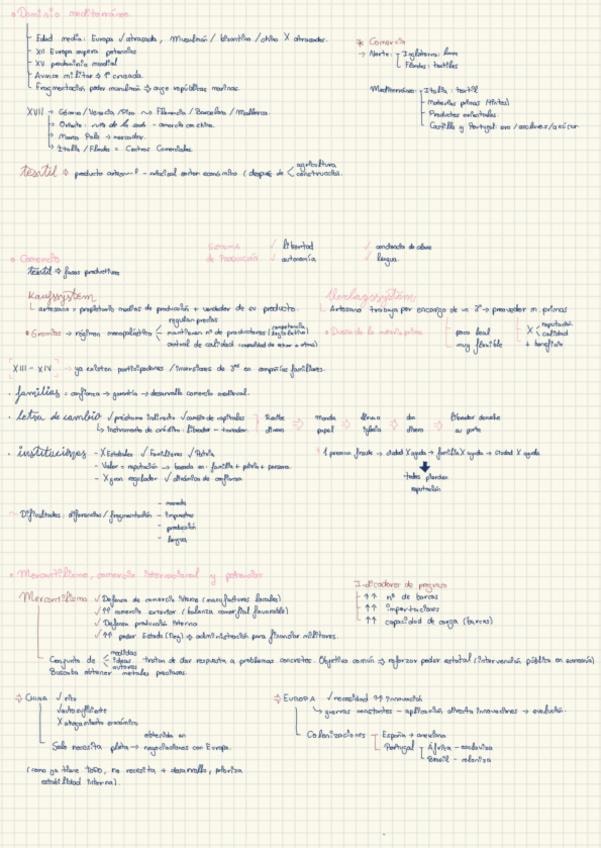 Dominio mediterráneo
Edad media: Europa √ atrasada, Musulmán / bizantina / china X atrasadas.
XII Europa supera potencias
XV predominio mundial
Avance militar → 1ª cruzada.
Fragmentación poder musulmán → auge repúblicas marinas.
* Comercio
→ Norte: Inglaterra: lana
Flandes: textiles
Mediterráneo: Italia: textil
Materias primas (tintes)
Productos orientales.
Castilla y Portugal: oro / esclavos / azúcar
XVII → Génova / Venecia / Pisa ~> Florencia / Barcelona / Mallorca.
Oriente: ruta de la seda - comercio con china.
Marco Polo → mercader.
Italia / Flandes = Centros Comerciales.
textil → producto artesanal - principal sector económico (después de < agricultura
construcción.
Comercio
textil → fases productivas
Sistema de Producción
√ libertad
√ autonomía
√ contrato de obra
√ lengua
Kaufsystem
artesano = propietario medios de producción + vendedor de su producto.
* Gremios → régimen monopolístico
regulan precios
mantienen nº de productores (competencia
control de calidad
Verlagssystem
Artesano trabaja por encargo de un 3º → proveedor m. primas
* Dueño de la materia prima
poco leal
muy flexible
X < reputación
calidad
+ beneficio
XIII - XIV → ya existen participaciones / inversiones de 3os en compañías familiares.
· familias = confianza → garantía → desarrollo comercio medieval.
· letra de cambio √ préstamo indirecto √ cambio de capitales
↳ Instrumento de crédito: librador - tomador.
Recibe dinero
manda papel
da dinero
librador devuelve su parte
· instituciones - X Estatales √ Familiares √ Patria
- Valor = reputación → basada en: familia + patria + persona.
- X gran regulador √ dinámica de confianza
1 persona fraude → ciudad X ayuda → familia X ayuda → ciudad X ayuda
todos pierden
reputación
Dificultades: diferencias / fragmentación
- moneda
- impuestos
- producción
- lengua
Mercantilismo, comercio internacional y potencias
Mercantilismo √ Defensa de comercio interno (manufacturas locales)
√ ↑↑ comercio exterior (balanza comercial favorable)
√ Defensa producción interna
√ ↑↑ poder Estado (Rey) → administración para financiar militares.
Indicadores de progreso
↑↑ nº de barcos
↑↑ importaciones
↑↑ capacidad de carga (barcos)
Conjunto de < medidas
ideas
autores
tratan de dar respuesta a problemas concretos. Objetivo común → reforzar poder estatal (intervención pública en economía)
Buscaba obtener metales preciosos.
→ CHINA √ rico
√ autosuficiente
X estancamiento económico
Solo necesita plata → obtenida en
negociaciones con Europa.
(como ya tiene TODO, no necesita + desarrollo, prioriza
estabilidad interna).
→ EUROPA √ necesidad ↑↑ innovación
↳ guerras constantes - aplicación directa innovaciones → evolución.
Colonizaciones
España → américa
Portugal
África - esclaviza
Brasil - coloniza